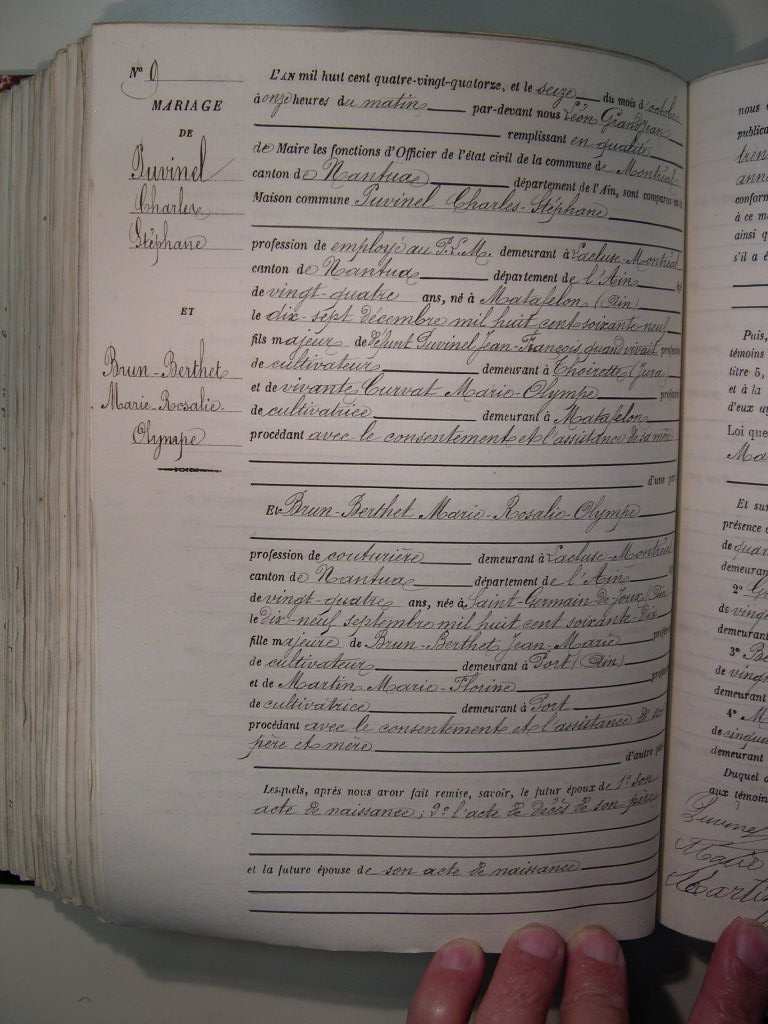 N° 9
MARIAGE
DE
Puvinel
Charles
Stéphane
ET
Brun-Berthet
Marie-Rosalie
Olympe
L'AN mil huit cent quatre-vingt-quatorze, et le seize du mois d'octobre
à onze heures du matin par-devant nous Léon Grandjean
remplissant en qualité
de Maire les fonctions d'Officier de l'état civil de la commune de Montréal
canton de Nantua département de l'Ain, sont comparus en la
Maison commune Puvinel Charles-Stéphane
profession de employé au P.L.M. demeurant à Lacluse-Montréal
canton de Nantua département de l'Ain
de vingt-quatre ans, né à Matafelon (Ain)
le dix-sept décembre mil huit cent soixante neuf
fils majeur de défunt Puvinel Jean-François quand vivait profession
de cultivateur demeurant à Thoirette (Jura)
et de vivante Curvat Marie-Olympe profession
de cultivatrice demeurant à Matafelon
procédant avec le consentement et l'assistance de sa mère
d'une part
Et Brun-Berthet Marie-Rosalie-Olympe
profession de couturière demeurant à Lacluse-Montréal
canton de Nantua département de l'Ain
de vingt-quatre ans, née à Saint-Germain de Joux (Ain)
le dix-neuf septembre mil huit cent soixante-dix
fille majeure de Brun-Berthet Jean-Marie profession
de cultivateur demeurant à Port (Ain)
et de Martin Marie-Florine profession
de cultivatrice demeurant à Port
procédant avec le consentement et l'assistance de ses
père et mère
d'autre part
Lesquels, après nous avoir fait remise, savoir, le futur époux de 1° son
acte de naissance; 2° l'acte de décès de son père
et la future épouse de son acte de naissance
nous
publica
tren
anné
conform
à ce m
ainsi q
s'il a é
Puis,
témoins
titre 5,
et à la
d'eux a
Loi que
Ma
Et sur
présence d
de quar
demeurant
2°
de vingt
demeurant
3° Be
de vingt
demeurant
4° M
de cinqua
demeurant
Duquel a
aux témoin
Puvine
Martin